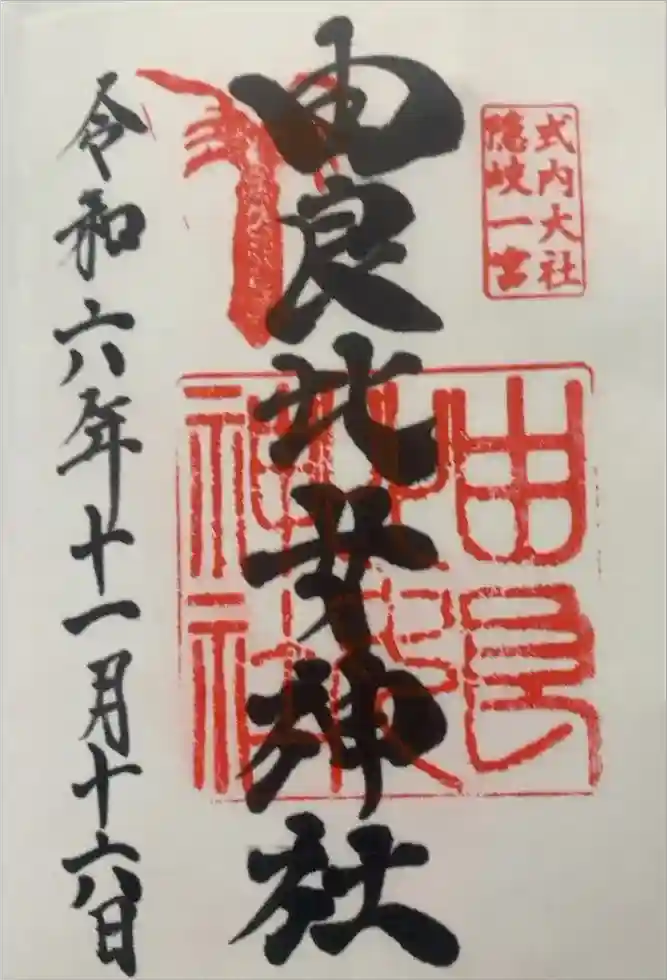 式内大社
隠岐一宮
由良比女神社
令和六年十一月十六日